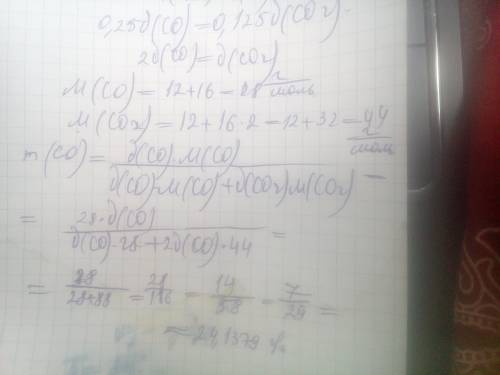 0,25∂(CO)=0,125∂(CO₂)
2∂(CO)=∂(CO₂)
M(CO)=12+16=28 г/моль
M(CO₂)=12+16·2=12+32=44 г/моль
m(CO)= ∂(CO)·M(CO) / ∂(CO)·M(CO)+∂(CO₂)M(CO₂) =
= 28·∂(CO) / ∂(CO)·28+2∂(CO)·44 =
= 28/28+88 = 28/116 = 14/58 = 7/29 =
≈24,1379 %